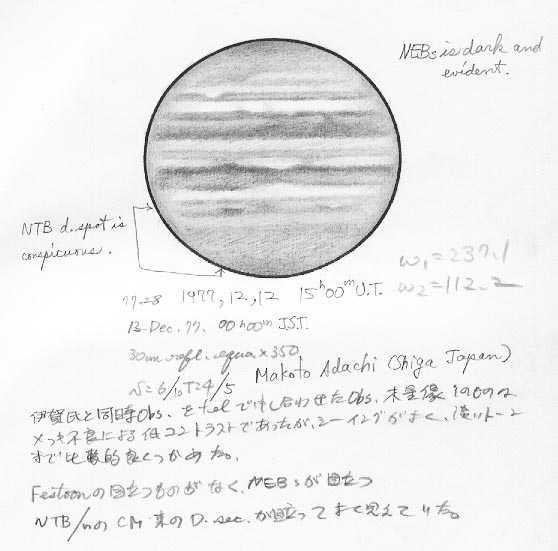 NEBs is dark and
evident.
NTB d. spot is
conspicuous.
ω1=237.1
ω2=112.2
77-28 1977, 12, 12 15h00m U.T.
13-Dec. 77. 00h00m J.S.T.
30cm refl. equa ×350
S=6/10 T=4/5 Makoto Adachi (Shiga Japan)
伊賀氏と同時Obs. をtelで申し合わせたObs.
メッキ不良による低コントラストであったが、シーイングがよく、淡いトーン
まで比較的良くつかめた。
Festoonの目立つものがなく、NEBsが目立つ
NTB/nのCM D. sec. が目立ってよく見えていた。